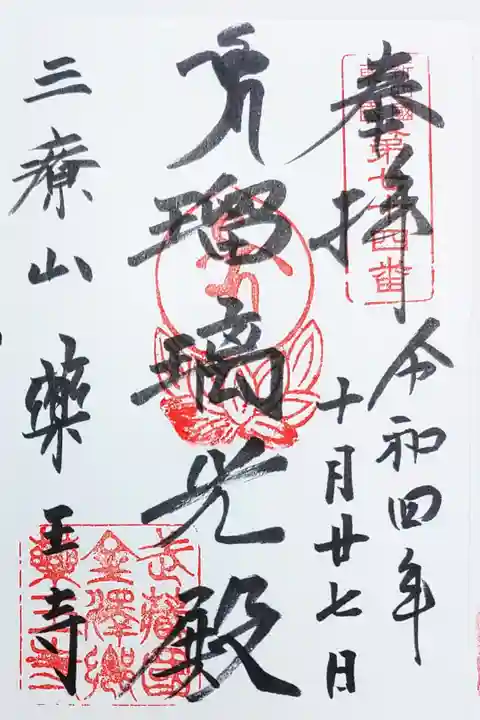 奉拝
令和四年
十月廿七日
瑠璃光殿
三療山 薬王寺
第七十四番
武蔵国
金澤郷